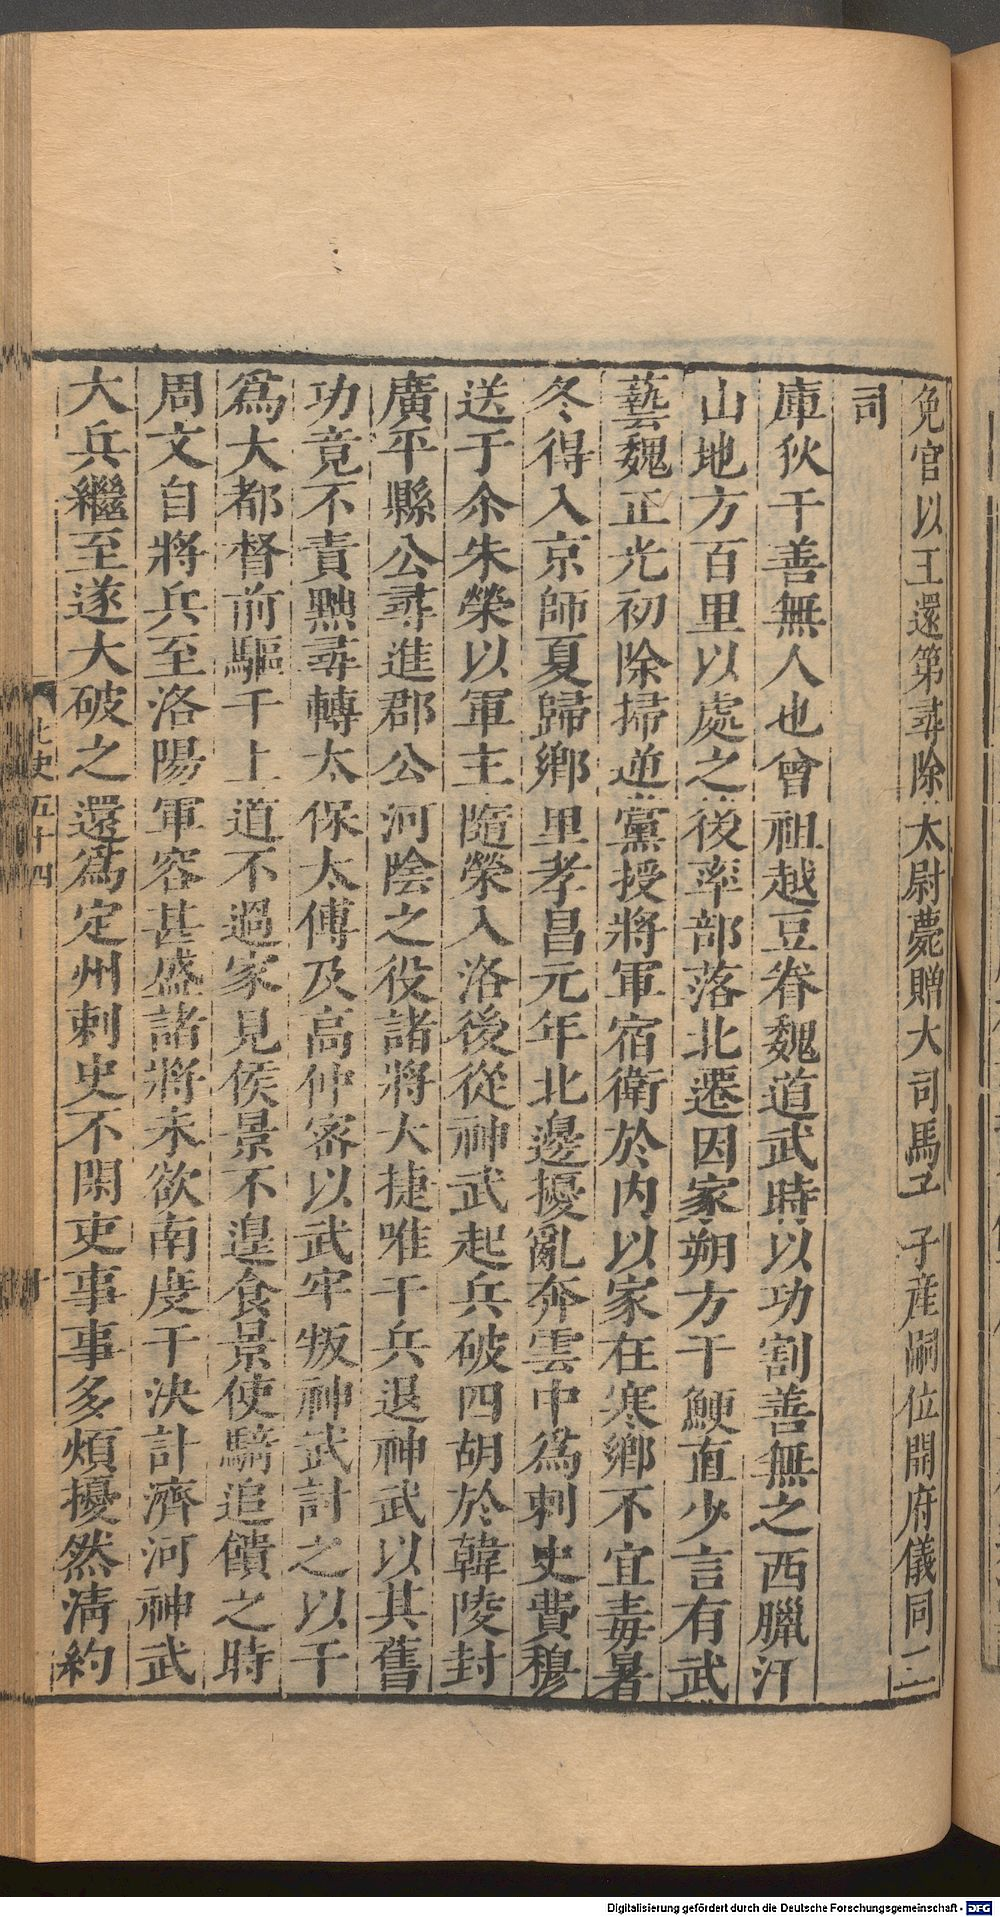 免官以王還第尋除太尉薨贈大司馬子子産嗣位開府儀同二
司
庫狄干善無人也曾祖越豆眷魏道武時以功割善無之西臘汙
山地方百里以處之後率部落北遷因家朔方干鯁直少言有武
藝魏正光初除掃逆黨授將軍宿衛於內以家在寒鄉不宜毒暑
冬得入京師夏歸鄉里孝昌元年北邊擾亂奔雲中爲刺史費穆
送于尒朱榮以軍主隨榮入洛後從神武起兵破四胡於韓陵封
廣平縣公尋進郡公河陰之役諸將大捷唯干兵退神武以其舊
功竟不責黜尋轉太保太傅及高仲密以武牢叛神武討之以干
爲大都督前驅干上道不過家見侯景不遑食景使騎追饋之時
周文自將兵至洛陽軍容甚盛諸將未欲南度干決計濟河神武
大兵繼至遂大破之還爲定州刺史不閑吏事事多煩擾然清約
北史五十四
Digitalisierung gefördert durch die Deutsche Forschungsgemeinschaft - DFG